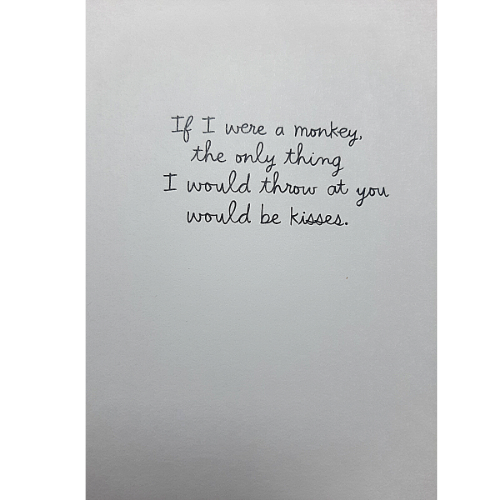 If I were a monkey,
the only thing
I would throw at you
would be kisses.